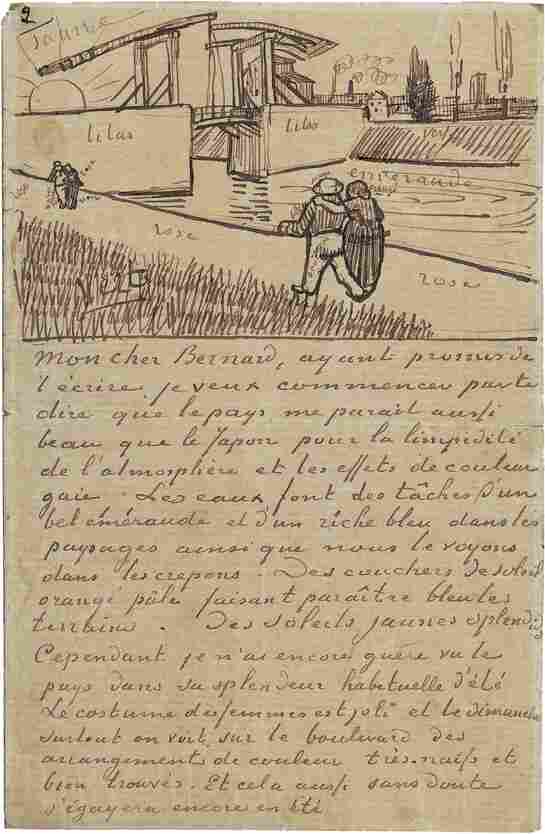 2
jaune
lilas
lilas
vert
emeraude
rose
rose
Mon cher Bernard, ayant promis de
t'écrire je veux commencer par te
dire que le pays me parait aussi
beau que le Japon pour la limpidité
de l'atmosphère et les effets de couleur
gaie. Les eaux font des tâches d'un
bel éméraude et d'un riche bleu dans les
paysages ainsi que nous le voyons
dans les crepons. Des couchers de soleil
orangé pâle faisant paraître bleu les
terrains. Des soleils jaunes splendides
Cependant je n'ai encore guère vu le
pays dans sa splendeur habituelle d'été
Le costume des femmes est joli et le dimanche
surtout on voit sur le boulevard des
arrangements de couleur très naifs et
bien trouvés. Et cela aussi sans doute
s'égayera encore en été